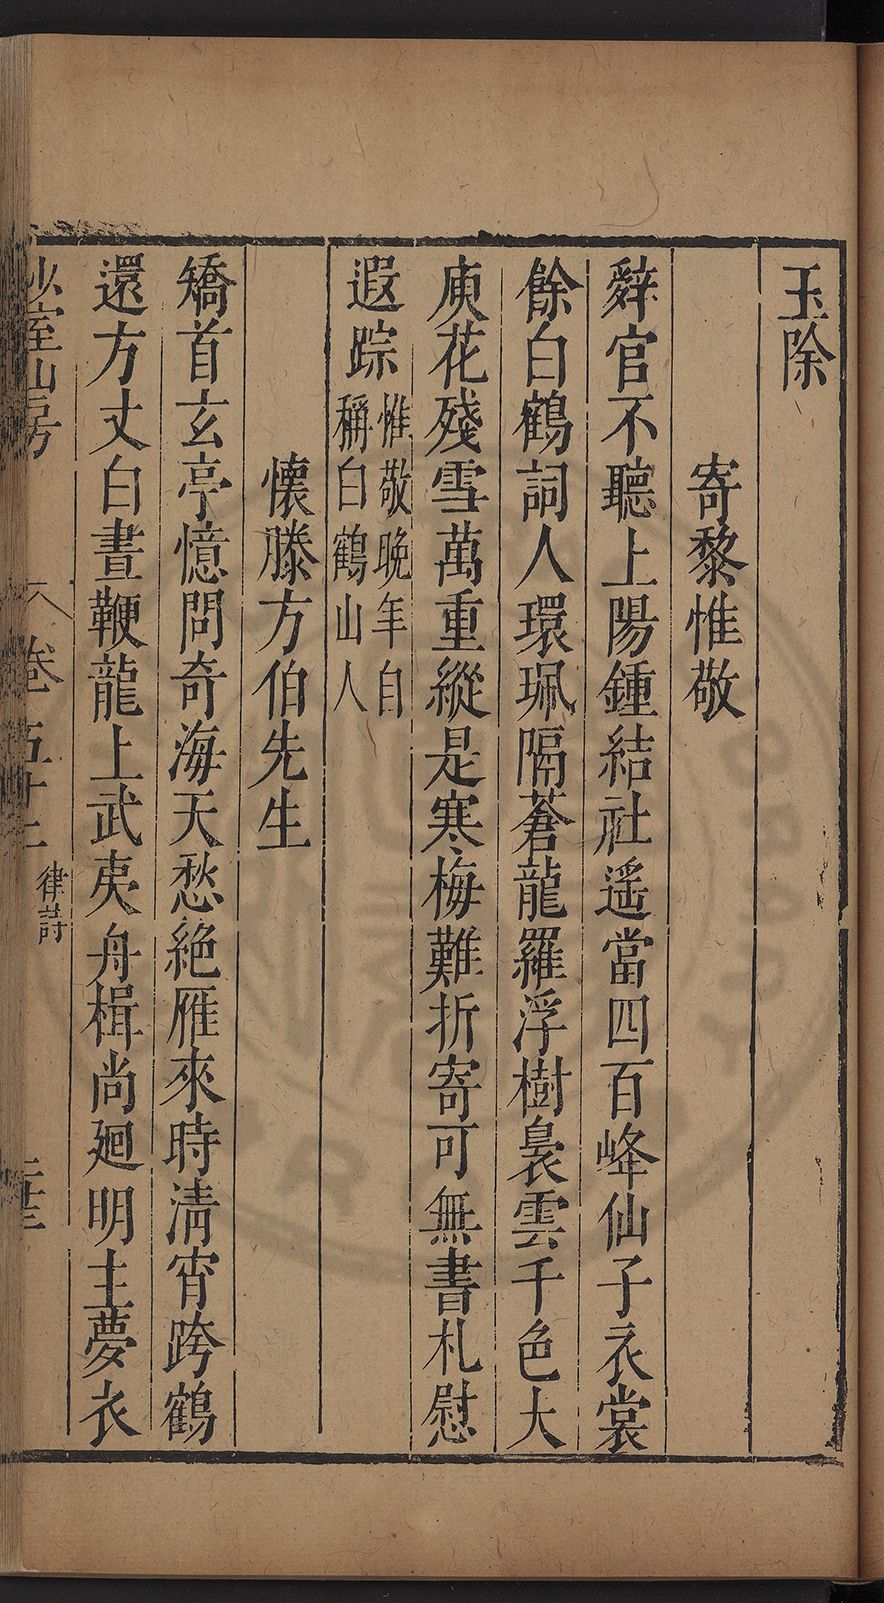 玉除
寄黎惟敬
辤官不聽上陽鍾結社遙當四百峰仙子衣裳
餘白鶴詞人環珮隔蒼龍羅浮樹裊雲千色大
庾花殘雪萬重縱是寒梅難折寄可無書札慰
遐踪
惟敬晚年自
稱白鶴山人
懷滕方伯先生
矯首玄亭憶問奇海天愁絕雁來時清宵跨鶴
還方丈白晝鞭龍上武夷舟楫尚廻明主夢衣
少室山房
卷五十二
律詩